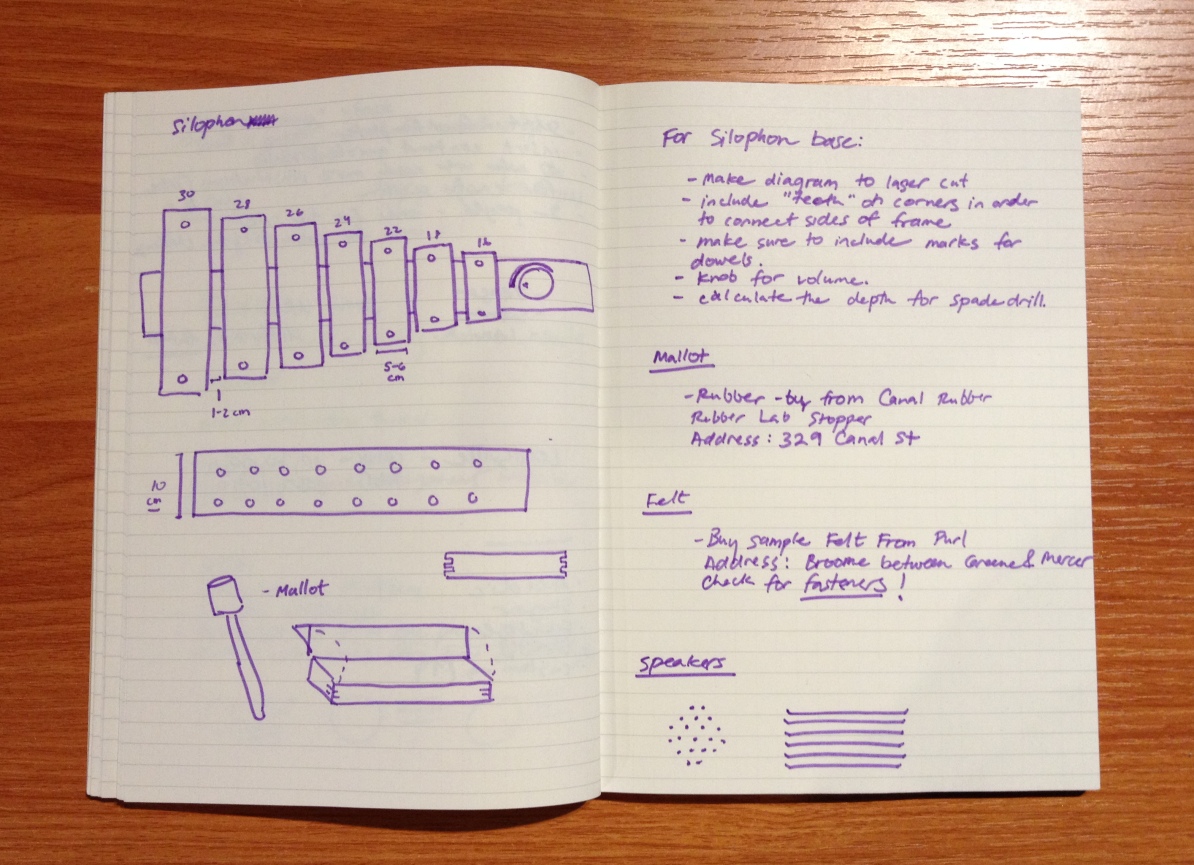 Silophon
30
28
26
24
22
18
16
5-6
cm
1-2 cm
10
cm
- Mallot
For Silophon base:
- make diagram to laser cut
- include "teeth" at corners in order
to connect sides of frame
- make sure to include marks for
dowels.
- knob for volume.
- calculate the depth for spade drill.
Mallot
- Rubber - buy from Canal Rubber
Rubber Lab Stopper
Address: 329 Canal St
Felt
- Buy sample Felt From Purl
Address: Broome between Greene & Mercer
Check for fasteners!
Speakers